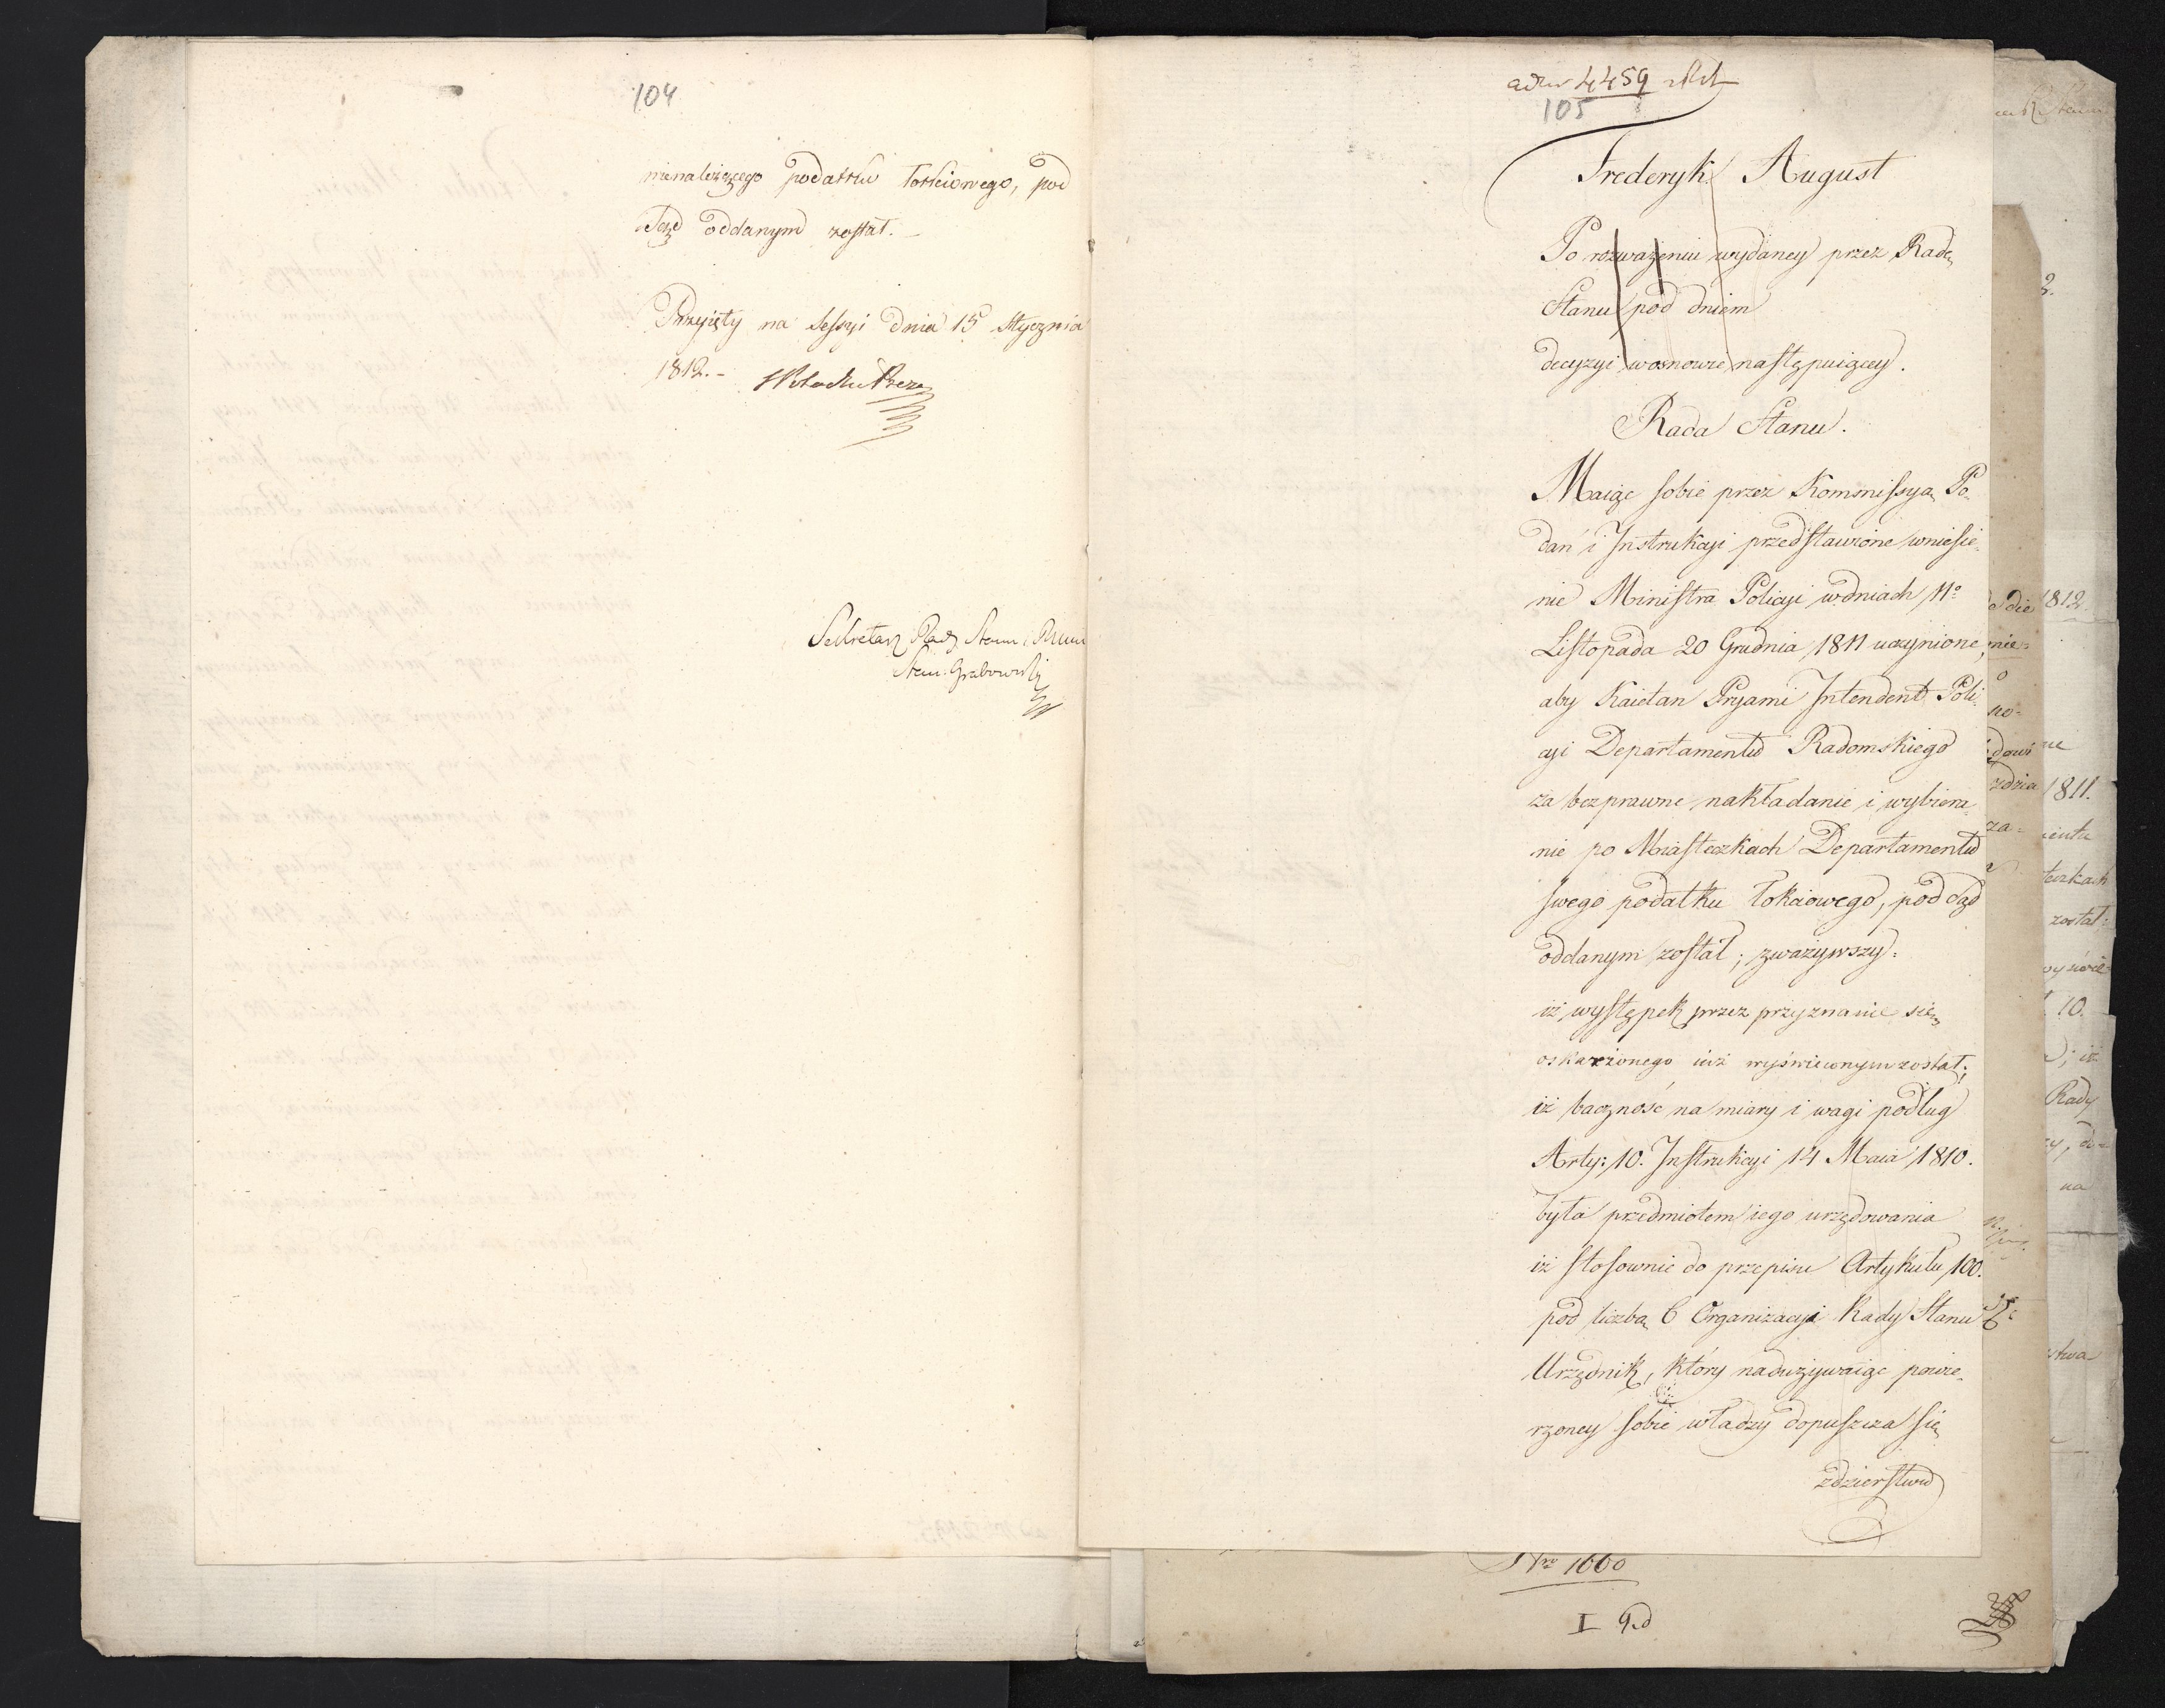 104
nienależącego podatku łokciowego, pod
Sąd oddanym został. –
Przyięty na Sessyi dnia 15 Stycznia
1812. –
Sekretarz Rady Stanu
Stan. Grabowski
4459
105
Frederyk August
Po rozważeniu wydaney przez Radę
Stanu pod dniem
decyzyi w osnowie następuiącey.
Rada Stanu.
Maiąc sobie przez Kommissyą Po-
dań i Instrukcyi przedstawione wniesie-
nie Ministra Policyi w dniach 11º
Listopada 20 Grudnia 1811 uczynione,
aby Kaietan Pryami Intendent Poli-
cyi Departamentu Radomskiego
za bezprawne nakładanie i wybiera-
nie po Miasteczkach Departamentu
swego podatku łokciowego, pod Sąd
oddanym został; zważywszy:
iż występek przez przyznanie się
oskarżonego iuż wyświeconym został;
iż baczność na miary i wagi podług
Arty: 10. Instrukcyi 14 Maia 1810.
była przedmiotem iego urzędowania
iż stosownie do przepisu Artykułu 100.
pod liczbą 6 Organizacyi Rady Stanu
Urzędnik, który nadużywaiąc powie-
rzoney sobie władzy dopuszcza się
zdzierstwa
Nro 1660
I
1812.
1811.
teczkach
został:
10.
Rady
na